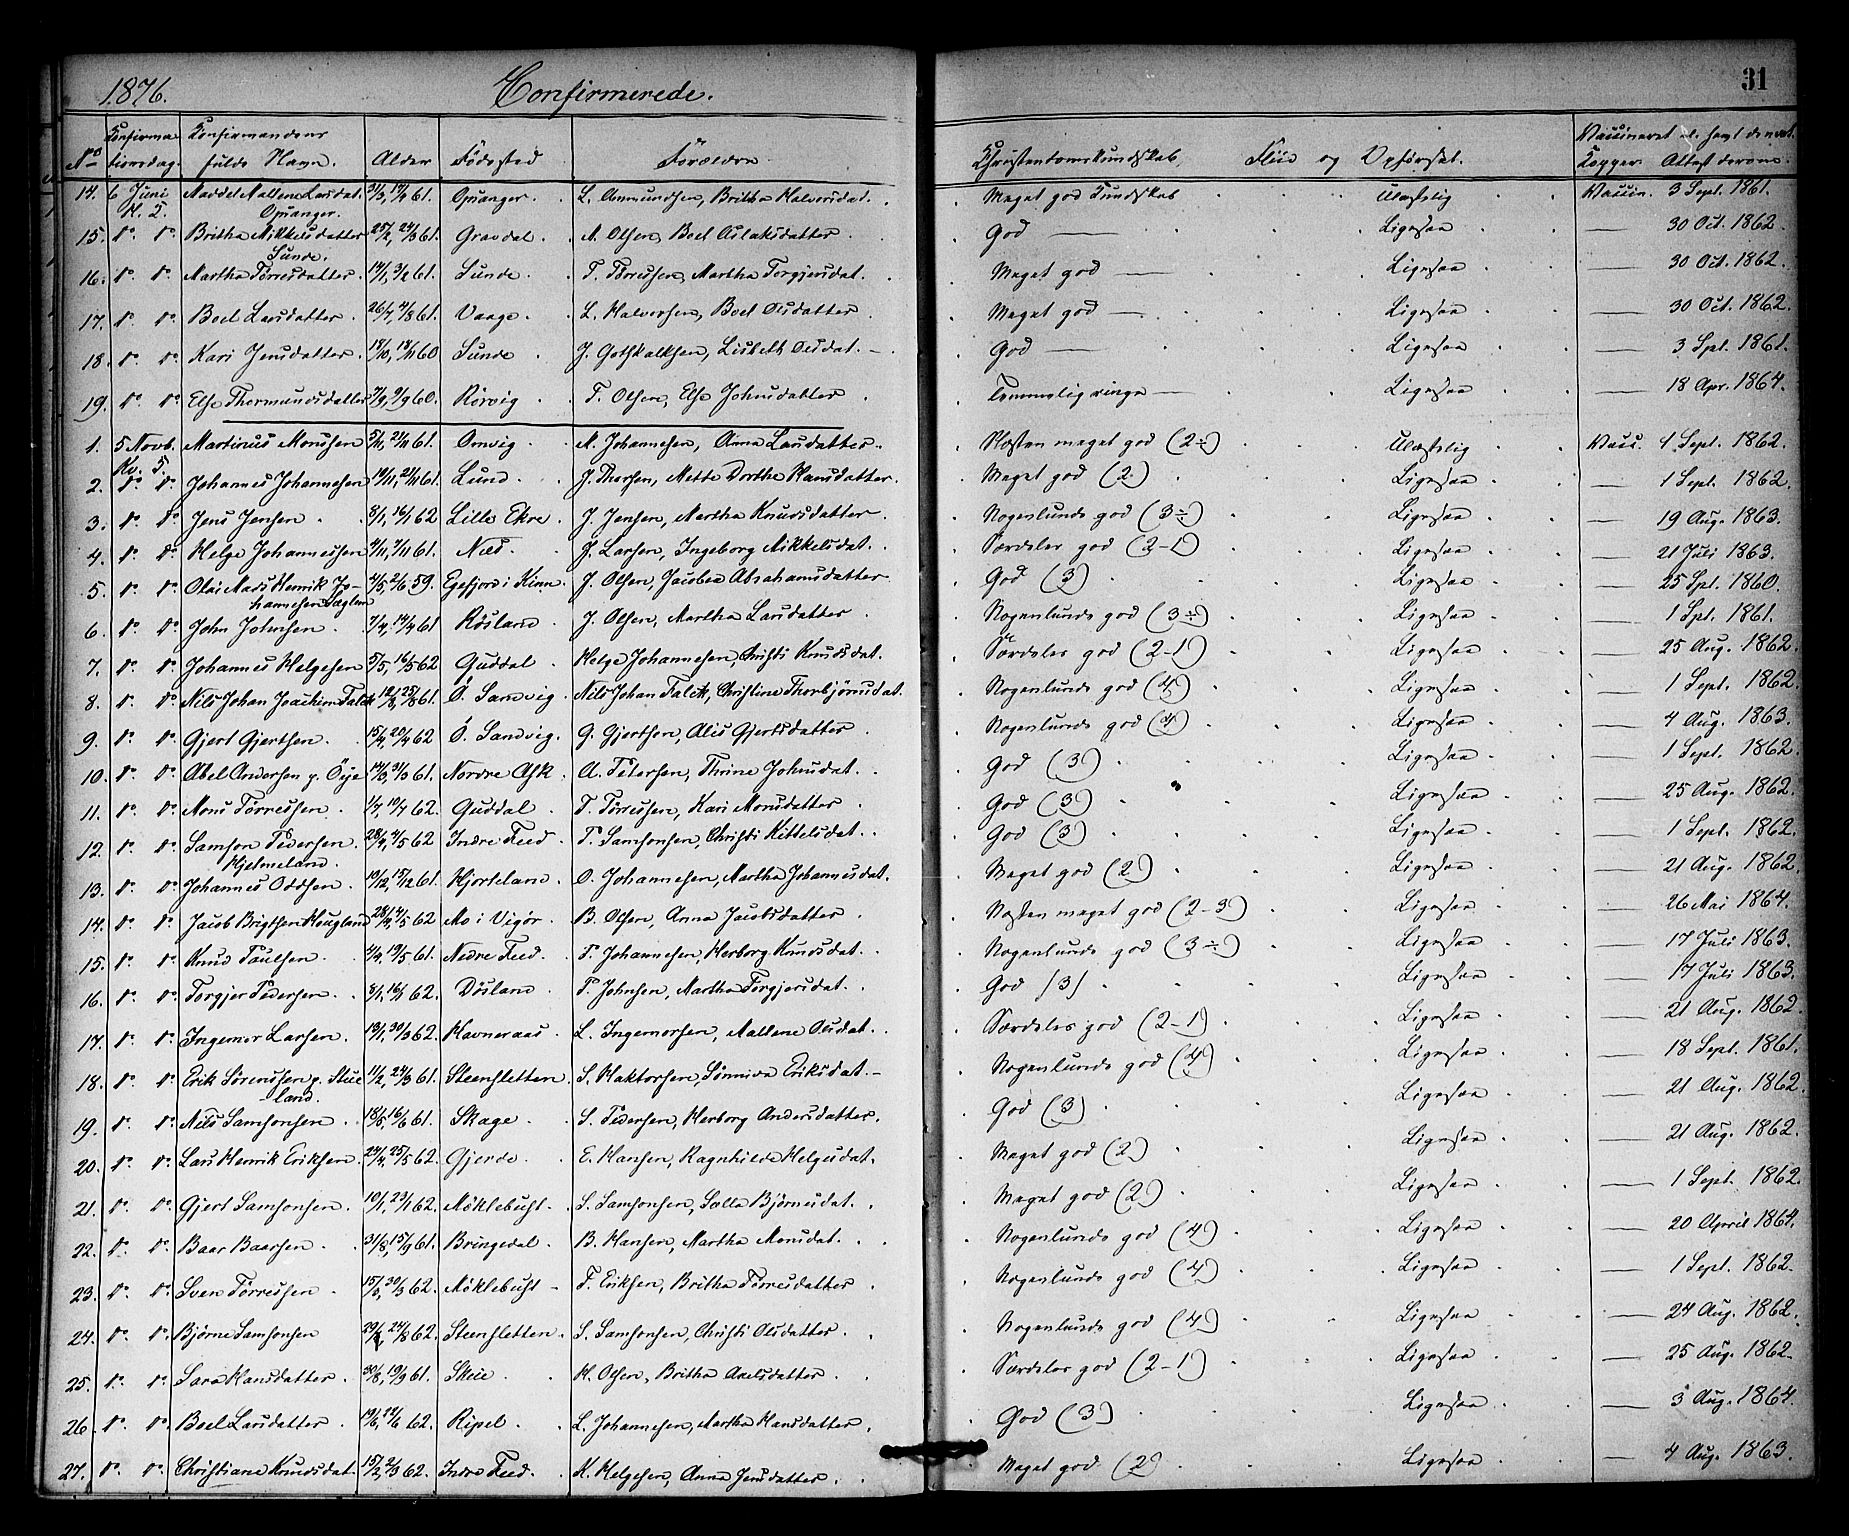 1876. Confirmerede. 31
No Konfirmationsdag. Konfirmandens fulde Navn. Alder Fødested Forældre. Christendomskundskab, Flid og Opførsel. Vaccineret el. havt de nat. Kopper. Attest derom.
14. 6 Juni K. T. Maddel Mallene Larsdat. Opsanger. 31/3, 14/4 61. Opsanger. L. Amundsen, Britha Halvorsdat. Meget god Kundskab Ulastelig Vaccin. 3 Sept. 1861.
15. do do Britha Mikkelsdatter Sunde. 25/2, 24/3 61. Gravdal. M. Olsen, Boel Aslaksdatter God — Ligesaa — 30 Oct. 1862.
16. do do Martha Tørresdatter. 14/1, 3/2 61. Sunde. T. Tørresen, Martha Torgjersdat. Meget god — Ligesaa — 30 Oct. 1862.
17. do do Boel Larsdatter. 26/7, 4/8 61. Vaage. L. Halvorsen, Boel Olsdatter Meget god — Ligesaa — 30 Oct. 1862.
18. do do Kari Jensdatter. 18/10, 18/11 60 Sunde J. Gothskalksen, Lisbeth Olsdat. God — Ligesaa — 3 Spt. 1861.
19. do do Else Thormundsdatter 7/9, 9/9 60. Rørvig T. Olsen, Else Johnsdatter Temmelig ringe — Ligesaa — 18 Apr. 1864.
1. 5 Novb. Kv. T. Martinus Monssen 5/11, 24/11 61. Omvig M. Johannesen, Anna Larsdatter. Næsten meget god (2÷) Ulastelig Vacc. 4 Sept. 1862.
2. do do Johannes Johannesen 19/11, 24/11 61. Lund. J. Thorsen, Mette Dorthea Hansdatter. Meget god (2) Ligesaa — 1 Sept. 1862.
3. do do Jens Jensen 8/1, 16/1 62 Lille Ekre. J. Jensen, Martha Knudsdatter. Nogenlunde god (3÷) Ligesaa — 19 Aug. 1863.
4. do do Helge Johannessen 4/11, 7/11 61. Næs. J. Larsen, Ingeborg Mikkelsdat. Særdeles god (2-1) Ligesaa — 21 Juli 1863.
5. do do Olai Mads Henrik Johannesen Sæglem 4/5, 2/6 59. Egefjord i Kinn. J. Olsen, Jacobea Abrahamsdatter God (3) Ligesaa — 25 Spt. 1860.
6. do do John Johnsen. 7/4, 14/4 61 Røsland J. Olsen, Martha Larsdatter Nogenlunde god (3÷) Ligesaa — 1 Spt. 1861.
7. do do Johannes Helgesen 5/5, 16/5 62 Guddal. Helge Johannesen, Christi Knudsdat. Særdeles god (2-1) Ligesaa — 25 Aug. 1862.
8. do do Nils Johan Joachim Falck 12/8, 25/8 61. Ö. Sandvig. Nils Johan Falck, Christine Thorbjörnsdat. Nogenlunde god (4) Ligesaa — 1 Sept. 1862.
9. do do Gjert Gjertsen. 15/4, 20/4 62 Ö. Sandvig. G. Gjertsen, Alis Gjertsdatter Nogenlunde god (4) Ligesaa — 4 Aug. 1863.
10. do do Abel Andersen p. Öye 14/3, 31/3 61. Nordre Ask. A. Petersen, Thrine Johnsdat. God (3) Ligesaa — 1 Sept. 1862
11. do do Mons Tørressen. 1/4, 19/4 62. Guddal. T. Tørresen, Kari Monsdatter God (3) Ligesaa — 25 Aug. 1862.
12. do do Samson Pedersen Hjelmeland. 28/4, 4/5 62 Indre Feed. P. Samsonsen, Christi Kittelsdat. God (3) Ligesaa — 1 Sept. 1862.
13. do do Johannes Oddsen. 10/12, 15/12 61. Hjorteland. O. Johannesen, Martha Johannesdat. Meget god (2) Ligesaa — 21 Aug. 1862.
14. do do Jacob Brigtsen Hougland 28/4, 4/5 62 Mo i Vigør. B. Olsen, Anna Jacobsdatter Næsten meget god (2-3) Ligesaa — 26 Mai 1864.
15. do do Knud Paulsen. 4/4, 19/5 61. Nedre Feed. P. Johannesen, Herborg Knudsdat. Nogenlunde god (3÷) Ligesaa — 17 Juli 1863.
16. do do Torgjer Pedersen. 8/1, 16/1 62. Døsland. P. Johnsen, Martha Torgjersdat. God (3) Ligesaa — 17 Juli 1863.
17. do do Ingemor Larsen. 13/1, 30/3 62. Havneraas L. Ingemorsen, Mallene Olsdat. Særdeles god (2-1) Ligesaa — 21 Aug. 1862.
18. do do Erik Sørenssen p. Skueland. 11/2, 24/3 61. Steensletten. S. Haktorsen, Sønniva Eriksdat. Nogenlunde god (4) Ligesaa — 18 Sept. 1861.
19. do do Nils Samsonsen. 18/5, 16/6 61. Skage. S. Pedersen, Herborg Andersdatter. God (3) Ligesaa — 21 Aug. 1862
20. do do Lars Henrik Eriksen. 24/4, 25/5 62. Gjerde. E. Hansen, Ragnhilde Helgesdat. Meget god (2) Ligesaa — 21 Aug. 1862.
21. do do Gjert Samsonsen. 10/1, 23/1 62. Möklebust. S. Samsonsen, Solla Björnsdat. Meget god (2) Ligesaa — 1 Sept. 1862.
22. do do Baar Baarsen. 31/8, 15/9 61. Bringedal. B. Hansen, Martha Monsdat. Nogenlunde god (4) Ligesaa — 20 April 1864.
23. do do Sven Tørressen 15/3, 30/3 62. Möklebust T. Eriksen, Britha Tørresdatter Nogenlunde god (4) Ligesaa — 1 Sept. 1862.
24. do do Bjørne Samsonsen 24/8 62. Steensletten. S. Samsonsen, Christi Olsdatter. Nogenlunde god (4) Ligesaa — 24 Aug. 1862.
25. do do Sara Hansdatter. 30/8, 19/9 61. Skeie H. Olsen, Britha Axelsdatter. Særdeles god (2-1) Ligesaa — 25 Aug. 1862.
26. do do Boel Larsdatter. 62. Ripel. L. Johannesen, Martha Hansdatter. God (3) Ligesaa — 3 Aug. 1864.
27. do do Christiane Knudsdat. 15/2, 2/3 62. Indre Feed. K. Helgesen, Anna Jensdatter. Meget god (2) Ligesaa — 4 Aug. 1863.